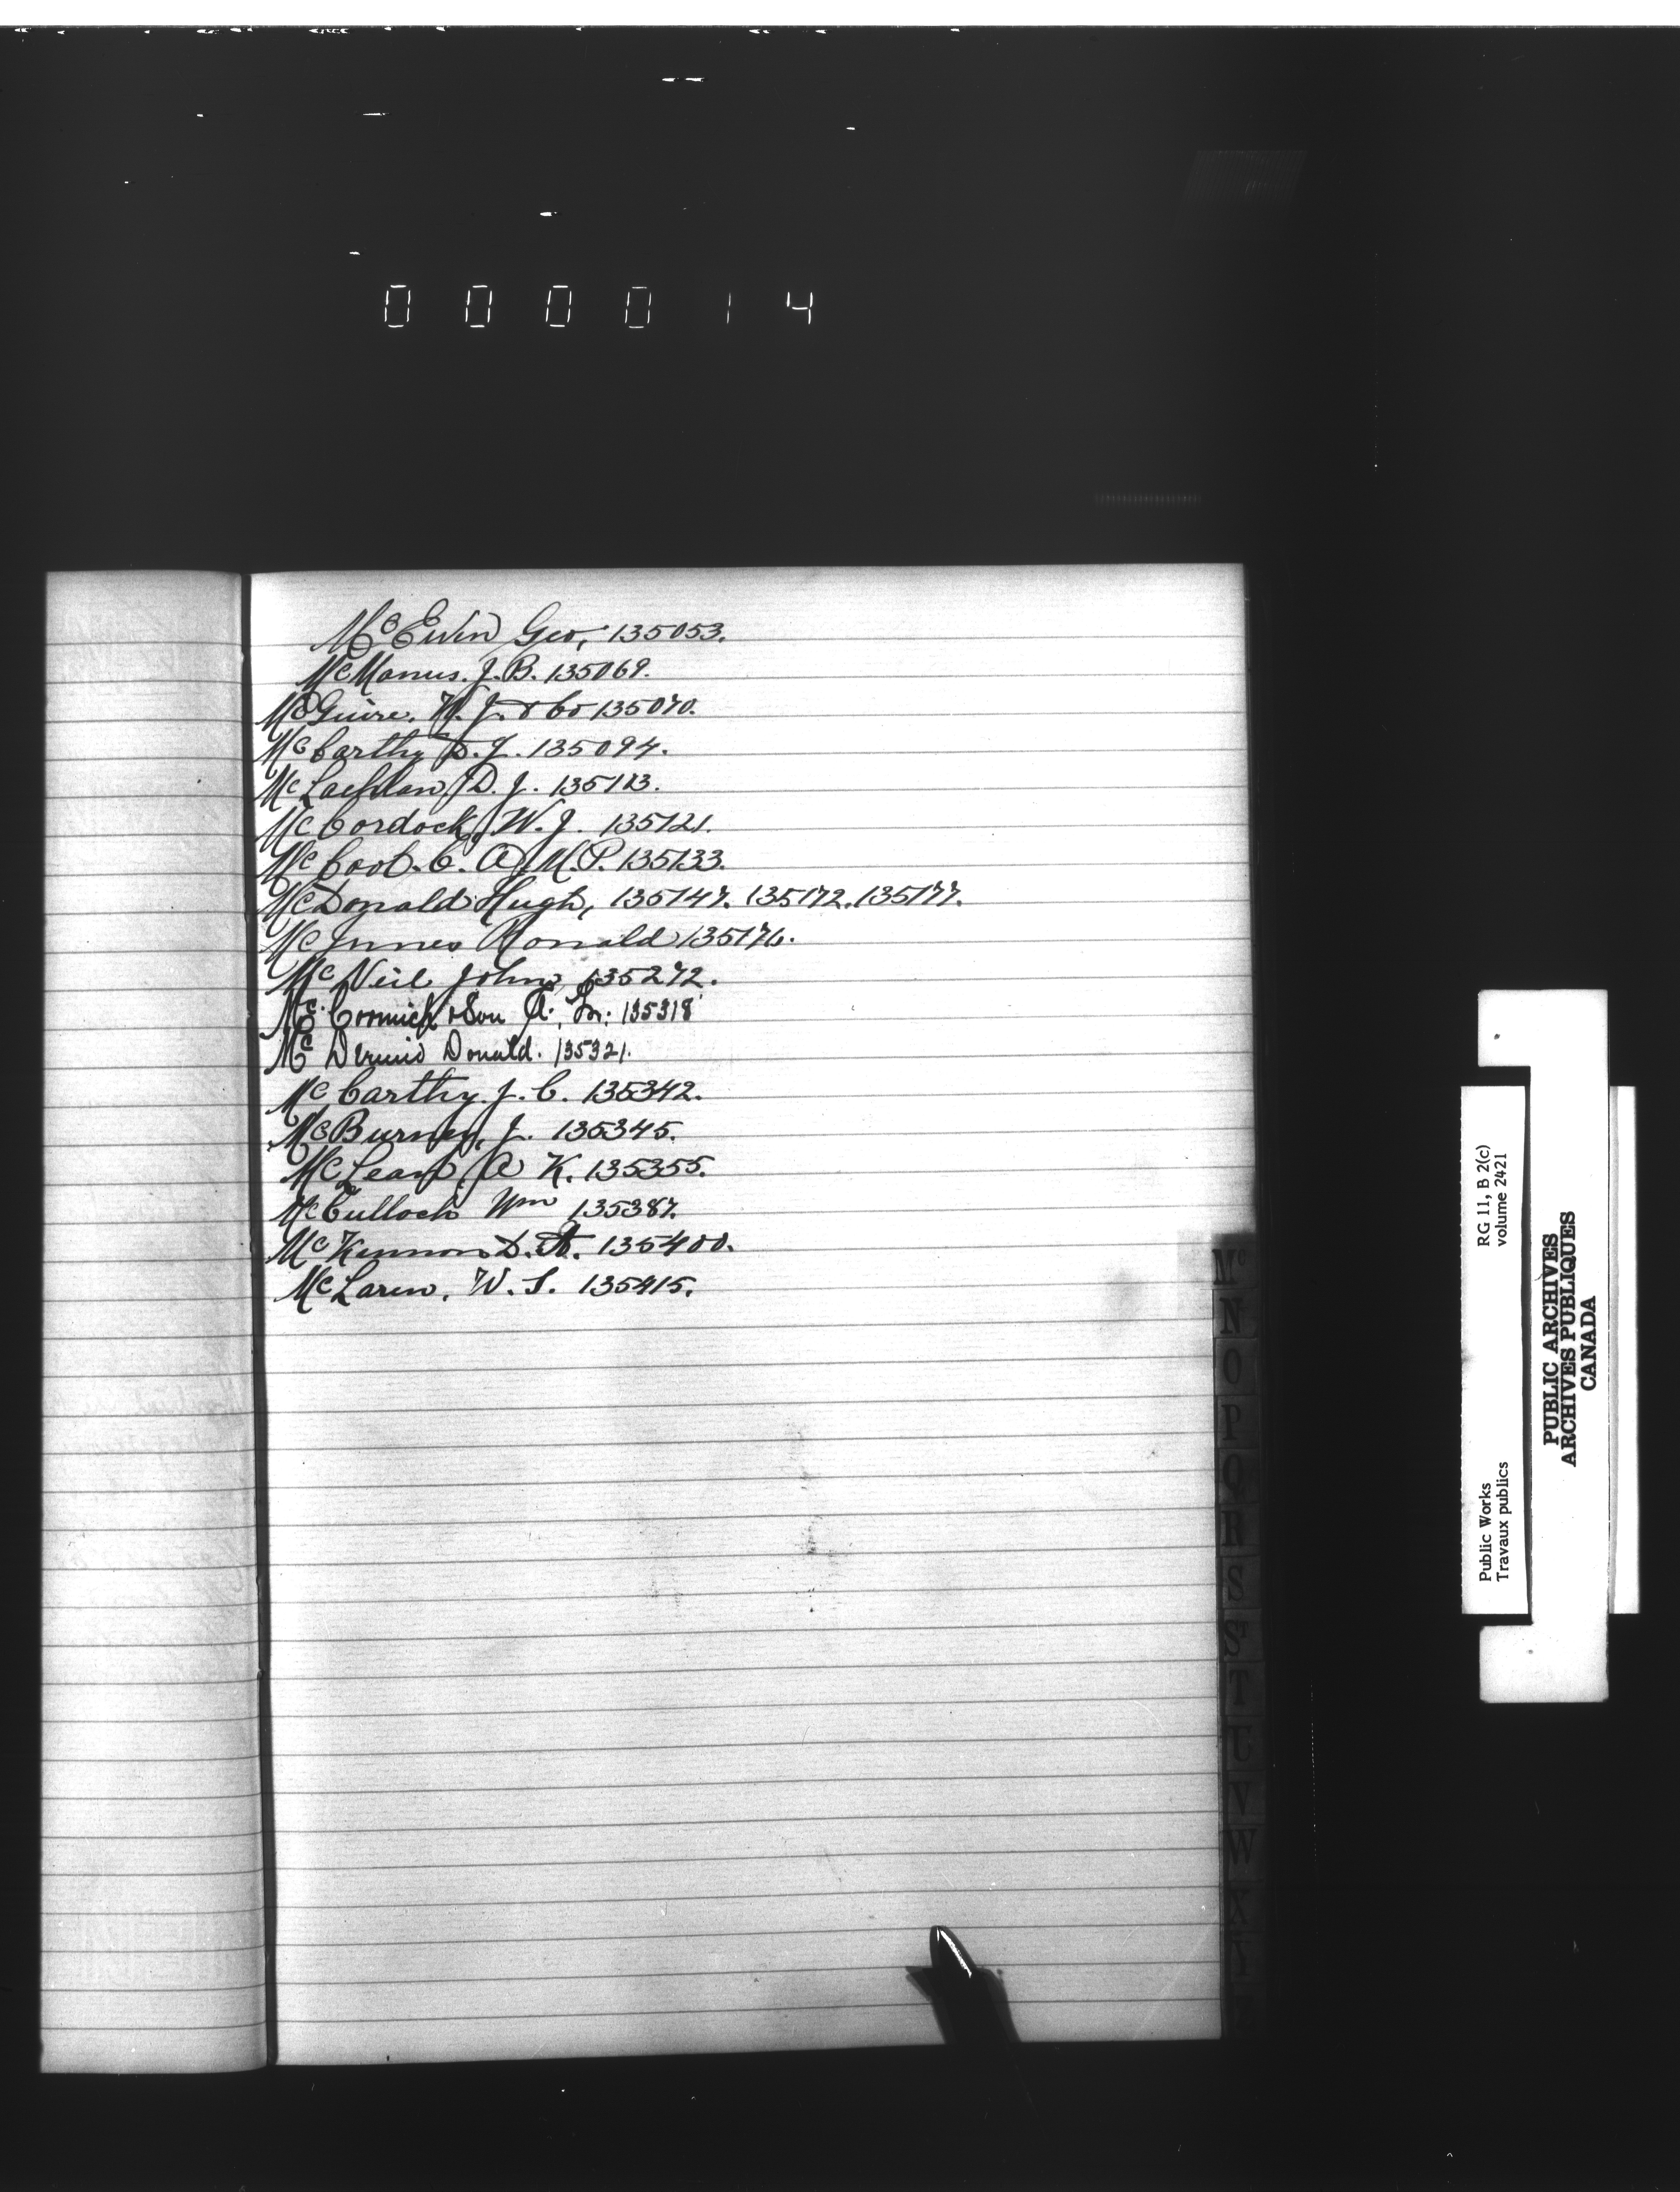 000014
McEwen Geo, 135053.
McManus. J. B. 135069.
McGuire. W. J. & Co 135070.
McCarthy D. J. 135094.
McLachlan, D. J. 135113.
McCordock, W. J. 135121.
McCool. C. A. M.P. 135133.
McDonald Hugh, 135147. 135172. 135177.
McInnes Ronald 135176.
McNeil John, 135272.
McCormick & Son A. 135318
McDermid Donald. 135321.
McCarthy. J. C. 135342.
McBurney, J. 135345.
McLean, A K. 135355.
McCulloch Wm 135387.
McKinnon D. A. 135400.
McLaren, W. S. 135415.
Mc
N
O
P
Q
R
S
T
U
V
W
X
Public Works
Travaux publics
RG 11, B 2(c)
volume 2421
PUBLIC ARCHIVES
ARCHIVES PUBLIQUES
CANADA